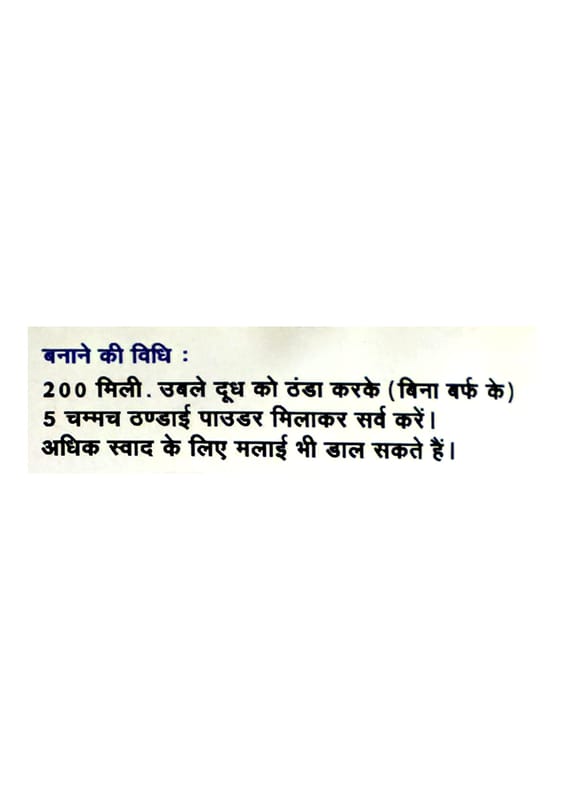 बनाने की विधि :
200 मिली. उबले दूध को ठंडा करके (बिना बर्फ के)
5 चम्मच ठण्डाई पाउडर मिलाकर सर्व करें।
अधिक स्वाद के लिए मलाई भी डाल सकते हैं।